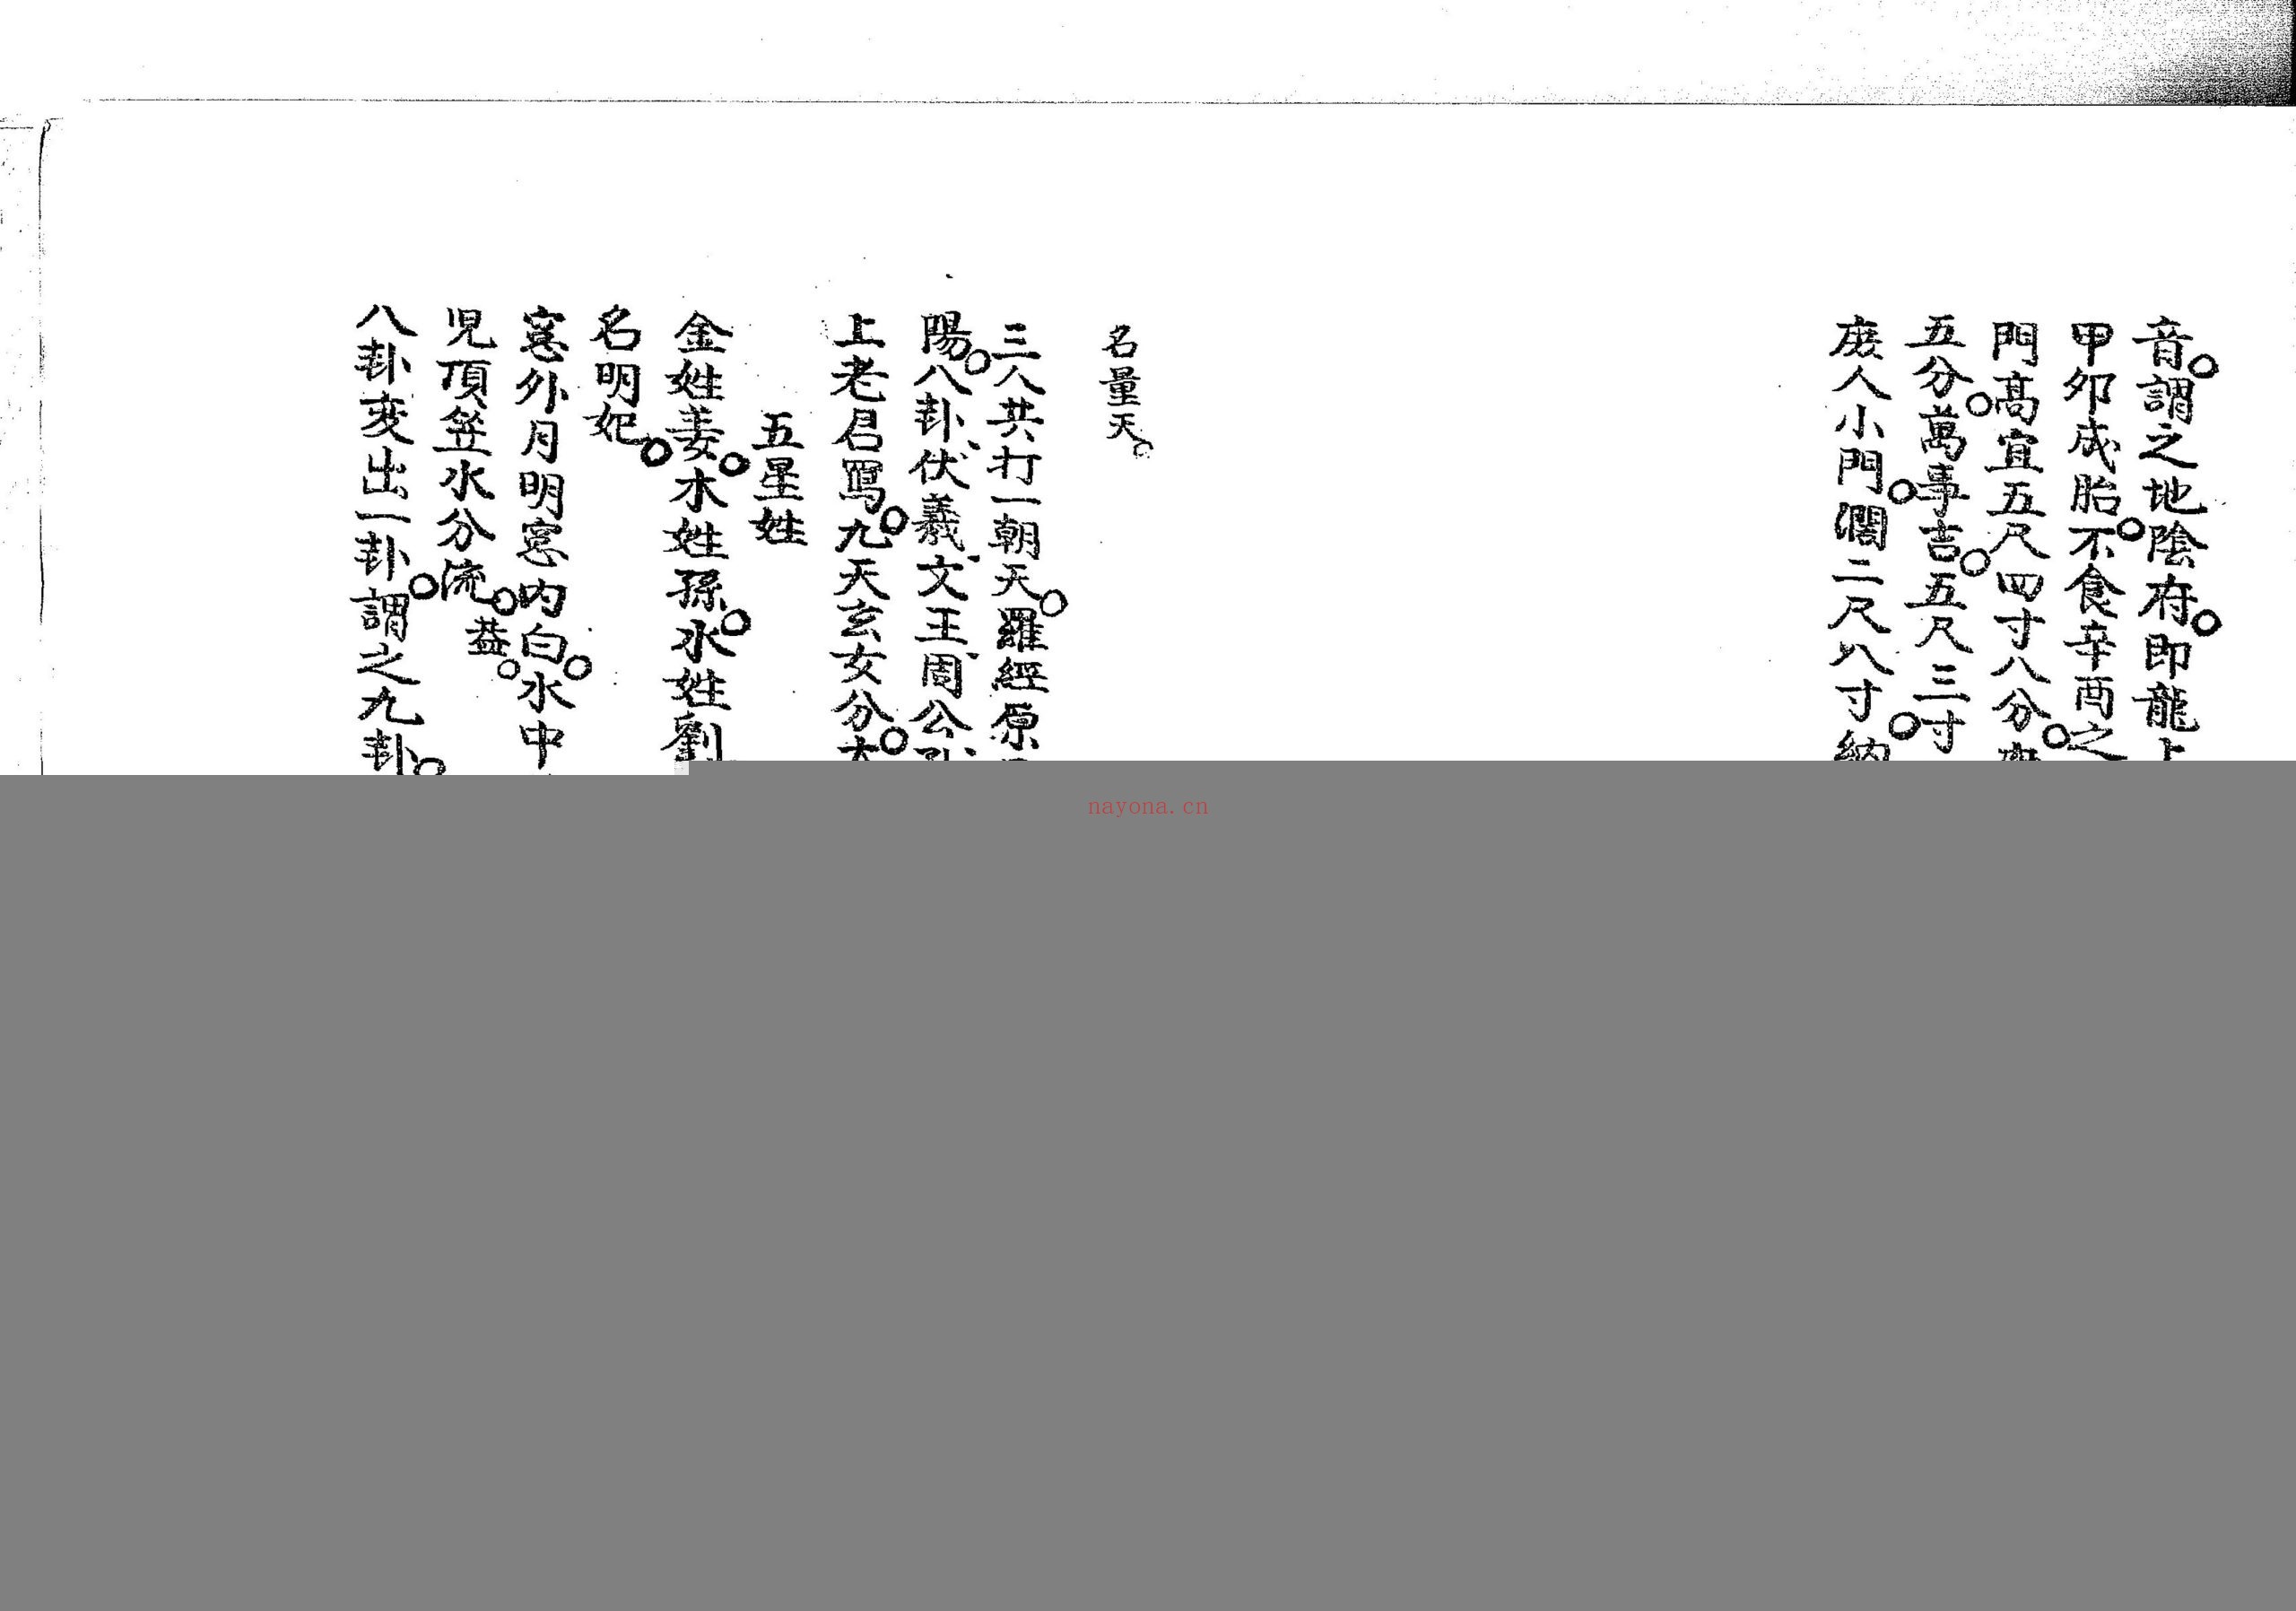 音。謂之地陰府。即龍上
甲卯成胎。不食辛酉之
門高宜五尺四寸八分。
五分。萬事吉。五尺三寸
庶人小門。濶二尺八寸。納
名量天。
三人共打一朝天。羅經原
陽。八卦、伏羲、文王、周公、孔
上老君罵。九天玄女分。
五星姓
金姓姜。木姓孫。水姓劉
名明妃。
窓外月明窓内白。水中
児頂笠水分流。益。
八卦変出一卦。謂之九卦。
nayona.cn